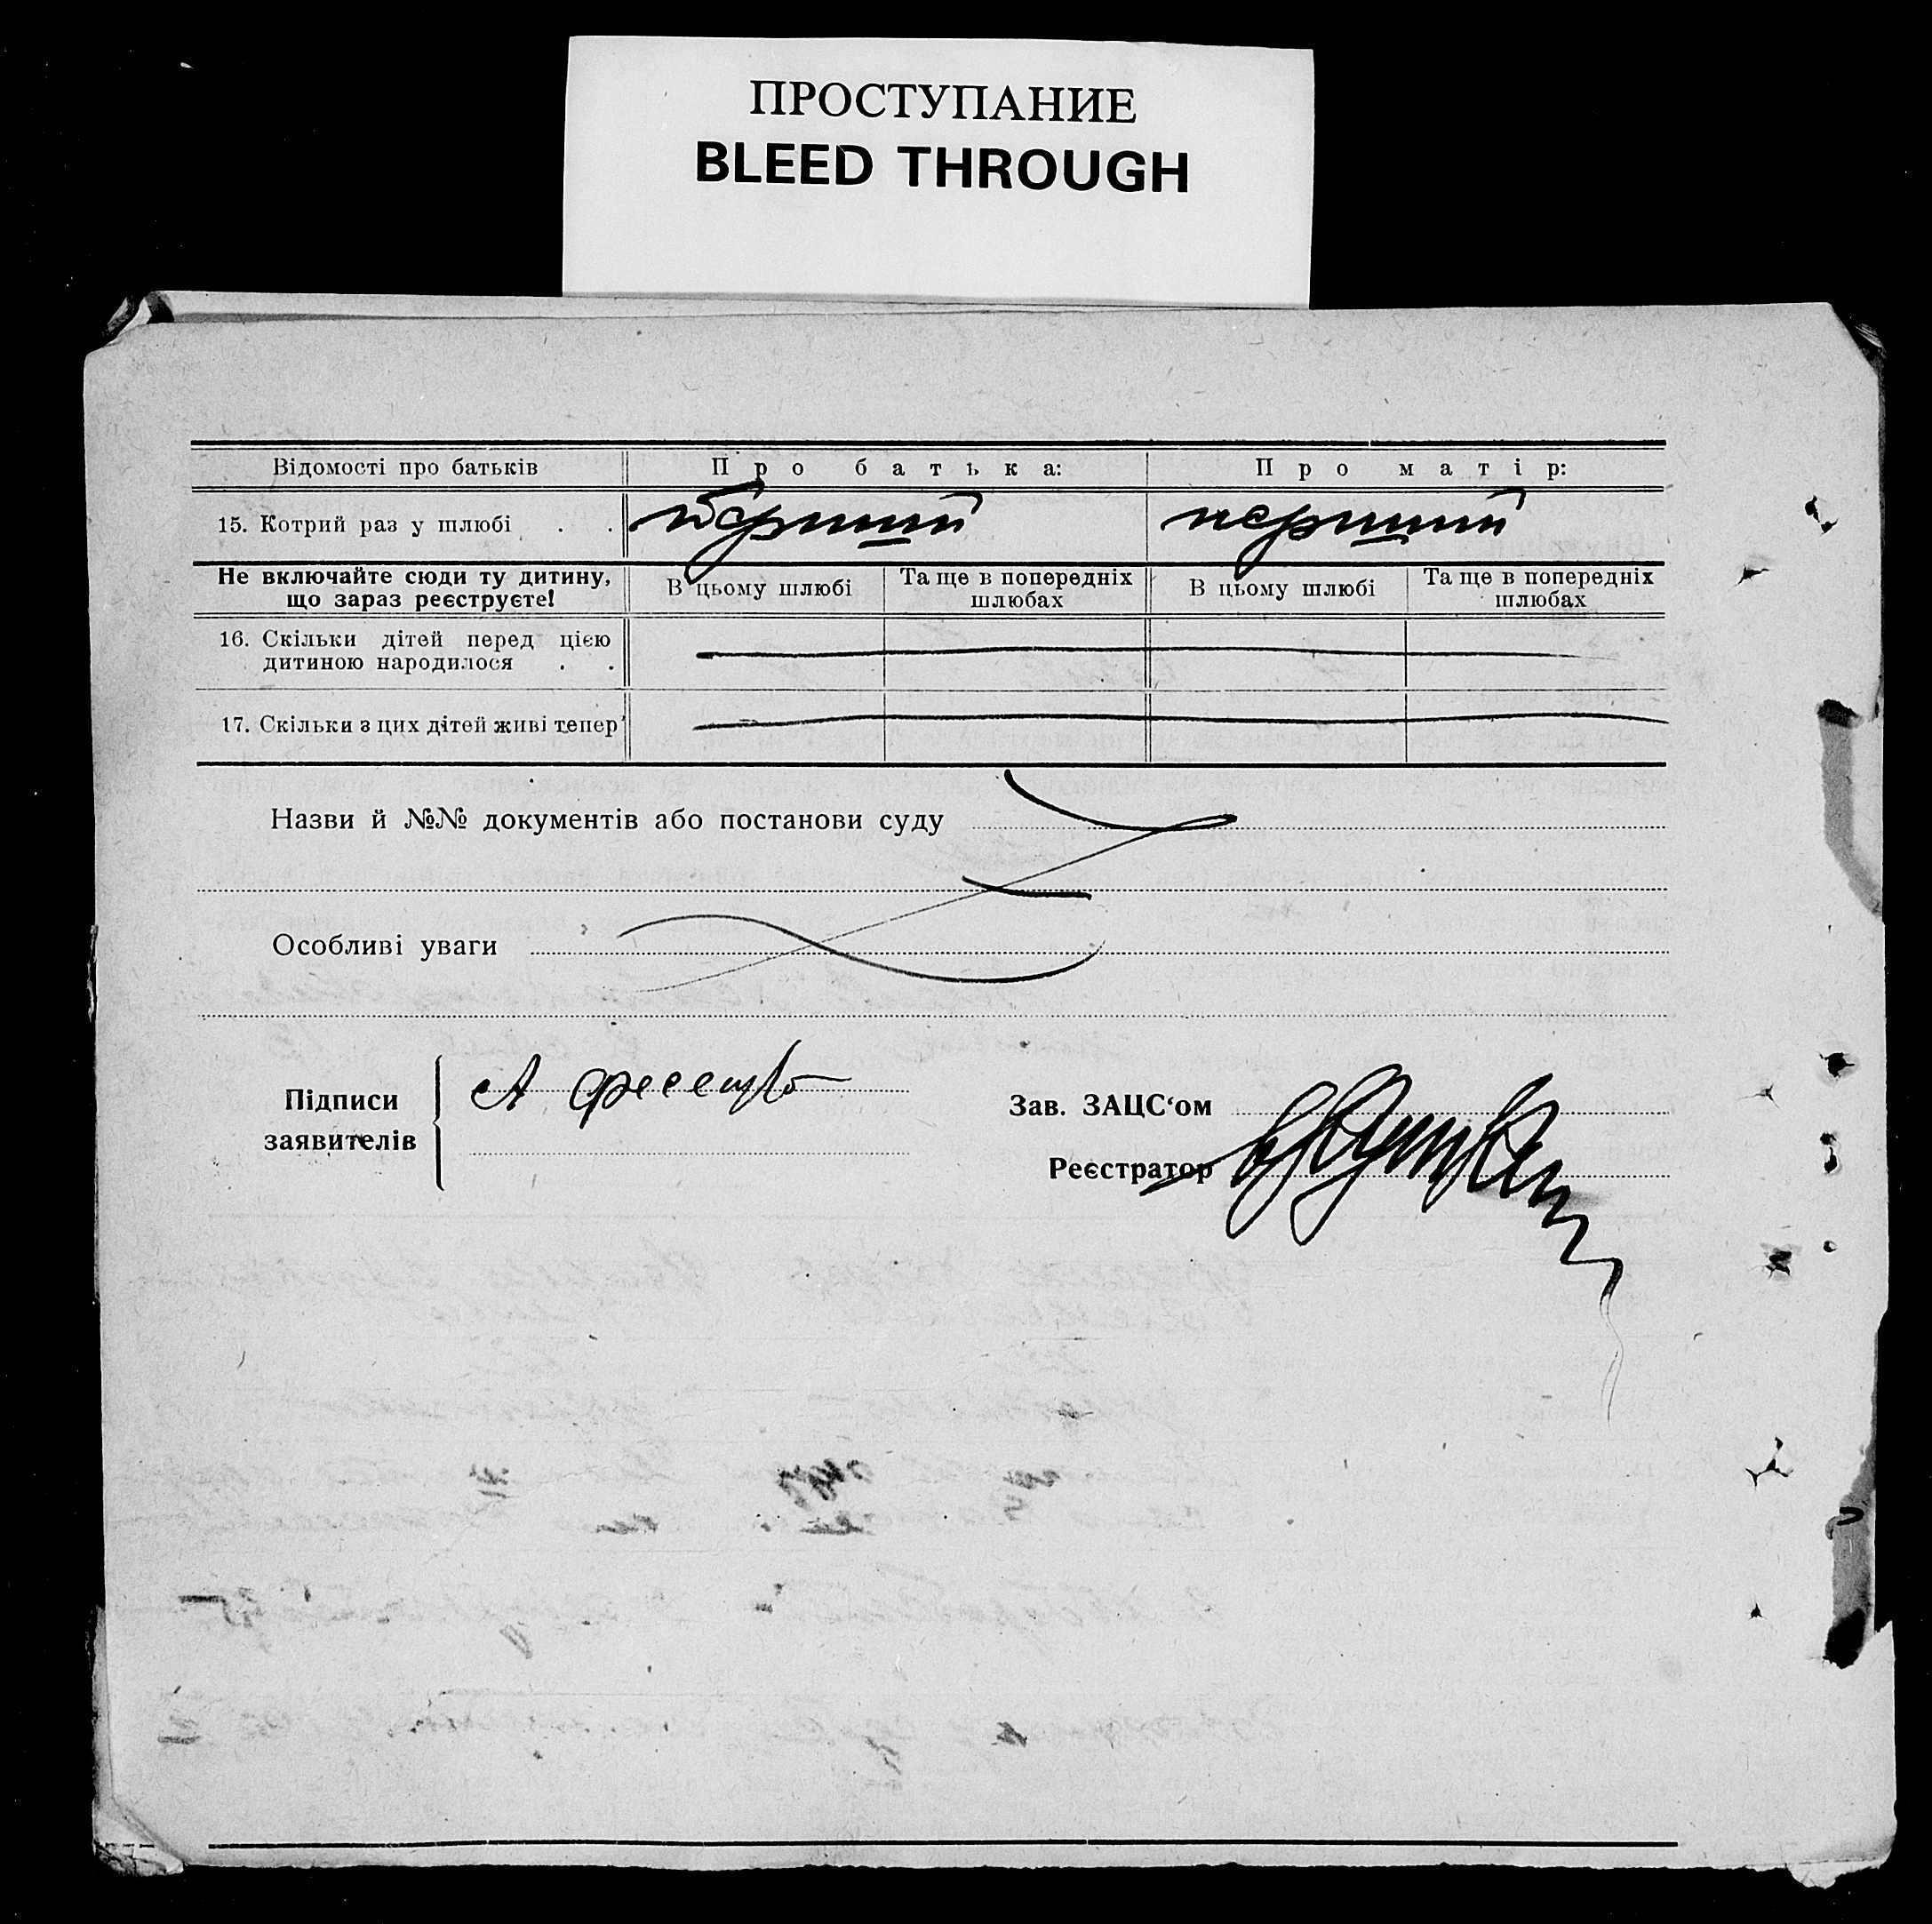 ПРОСТУПАНИЕ
BLEED THROUGH
Відомості про батьків Про батька: Про матір:
15. Котрий раз у шлюбі . . перший перший
Не включайте сюди ту дитину, що зараз реєструєте! В цьому шлюбі Та ще в попередніх шлюбах В цьому шлюбі Та ще в попередніх шлюбах
16. Скільки дітей перед цією
дитиною народилося . .
17. Скільки з цих дітей живі тепер
Назви й №№ документів або постанови суду
Особливі уваги
Підписи
заявителів
А
Зав. ЗАЦС‘ом
Реєстратор